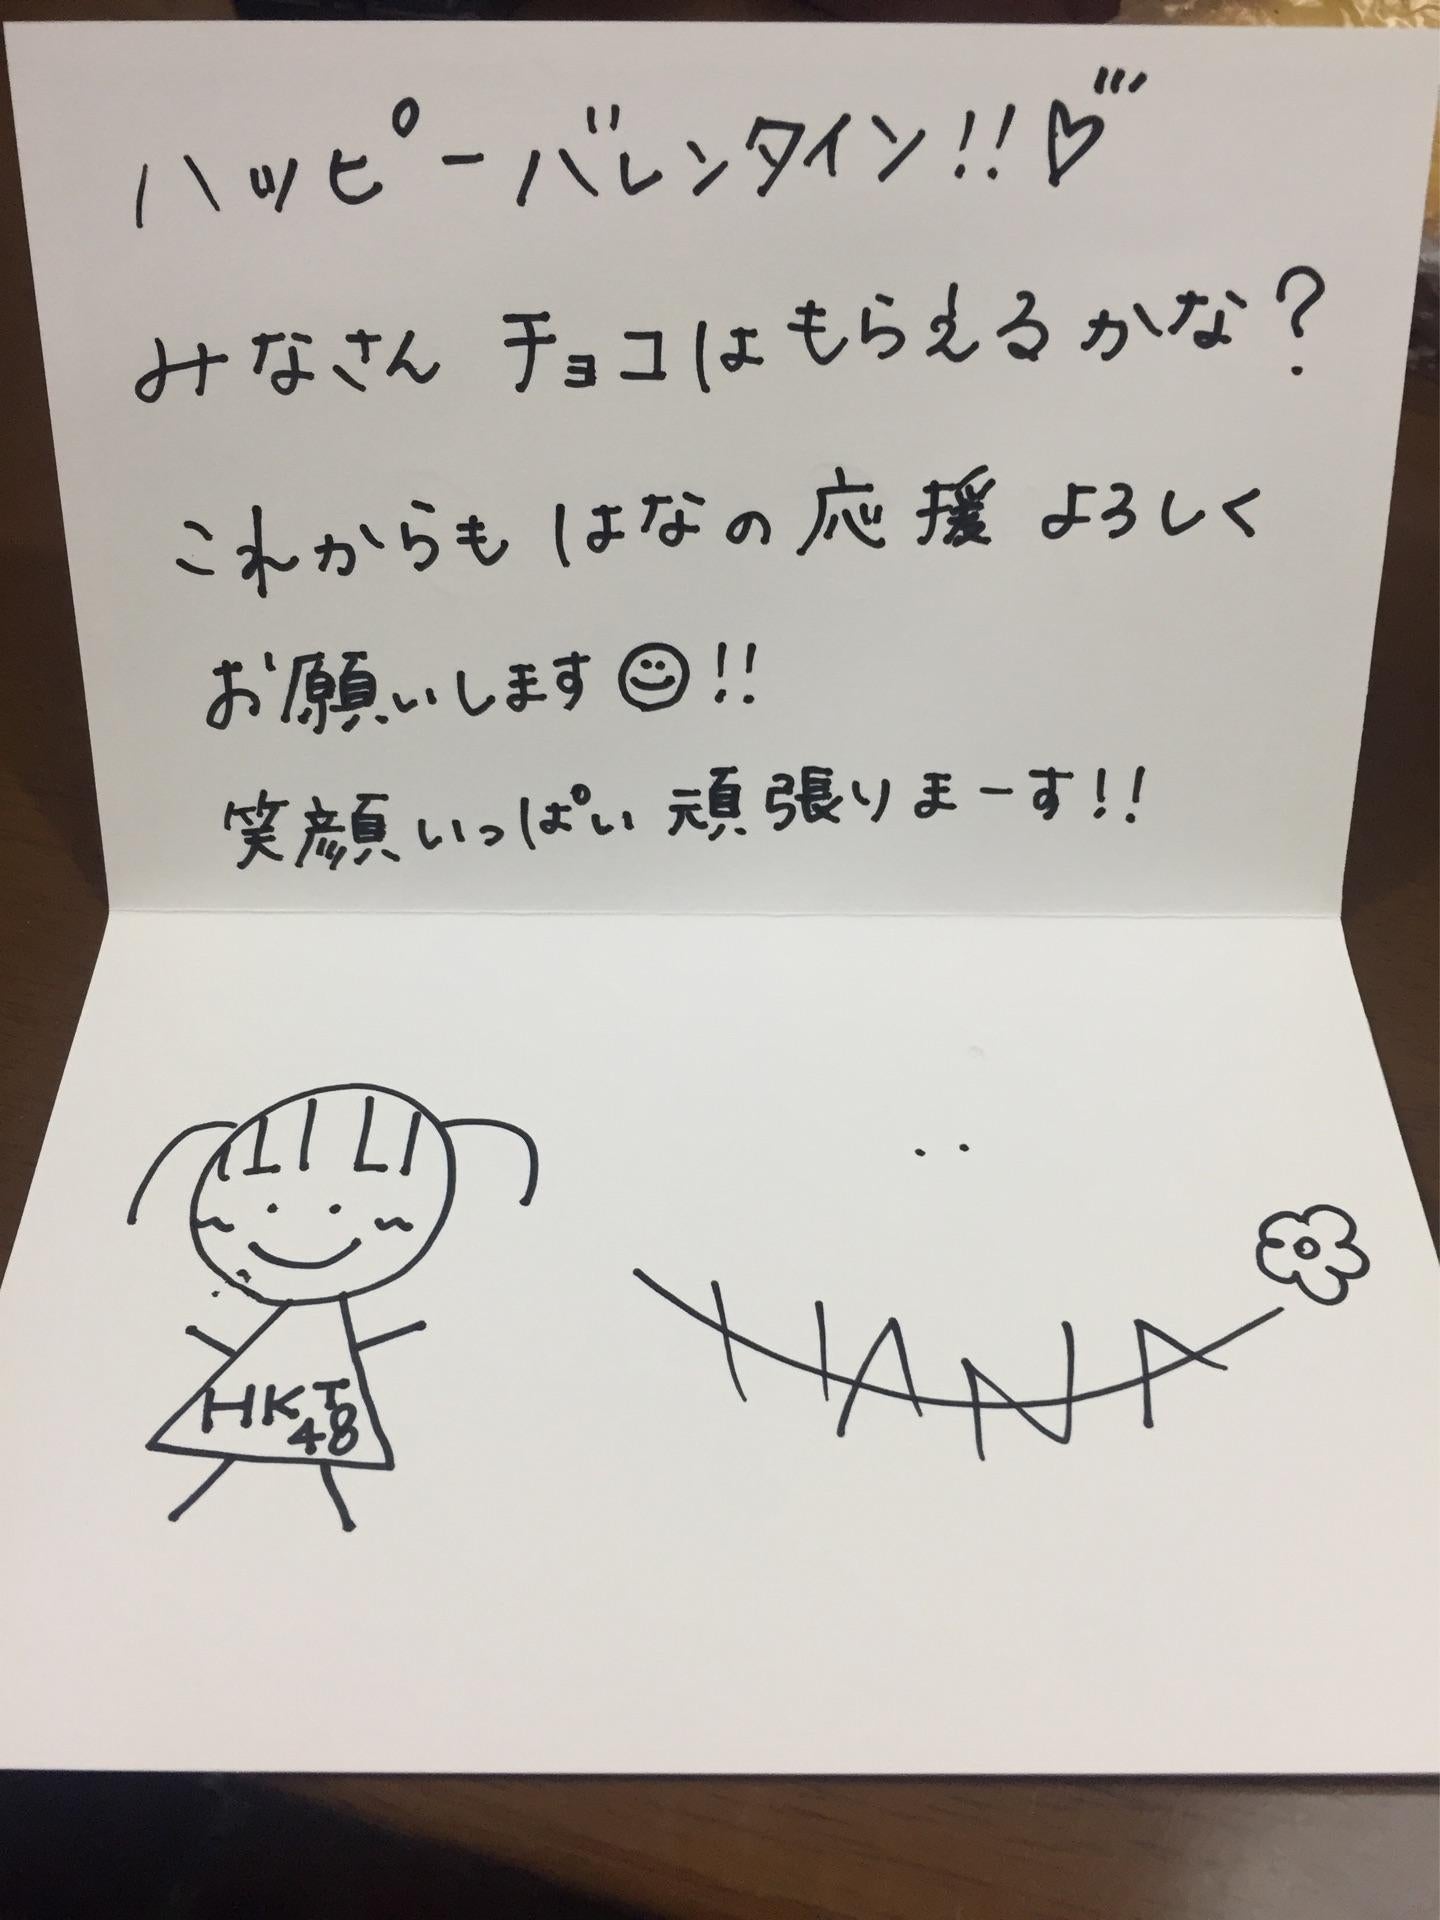 ハッピーバレンタイン!!♡
みなさん チョコはもらえるかな?
これからも はなの 応援 よろしく
お願いします☺!!
笑顔いっぱい 頑張りまーす!!
HKT
48
HANA